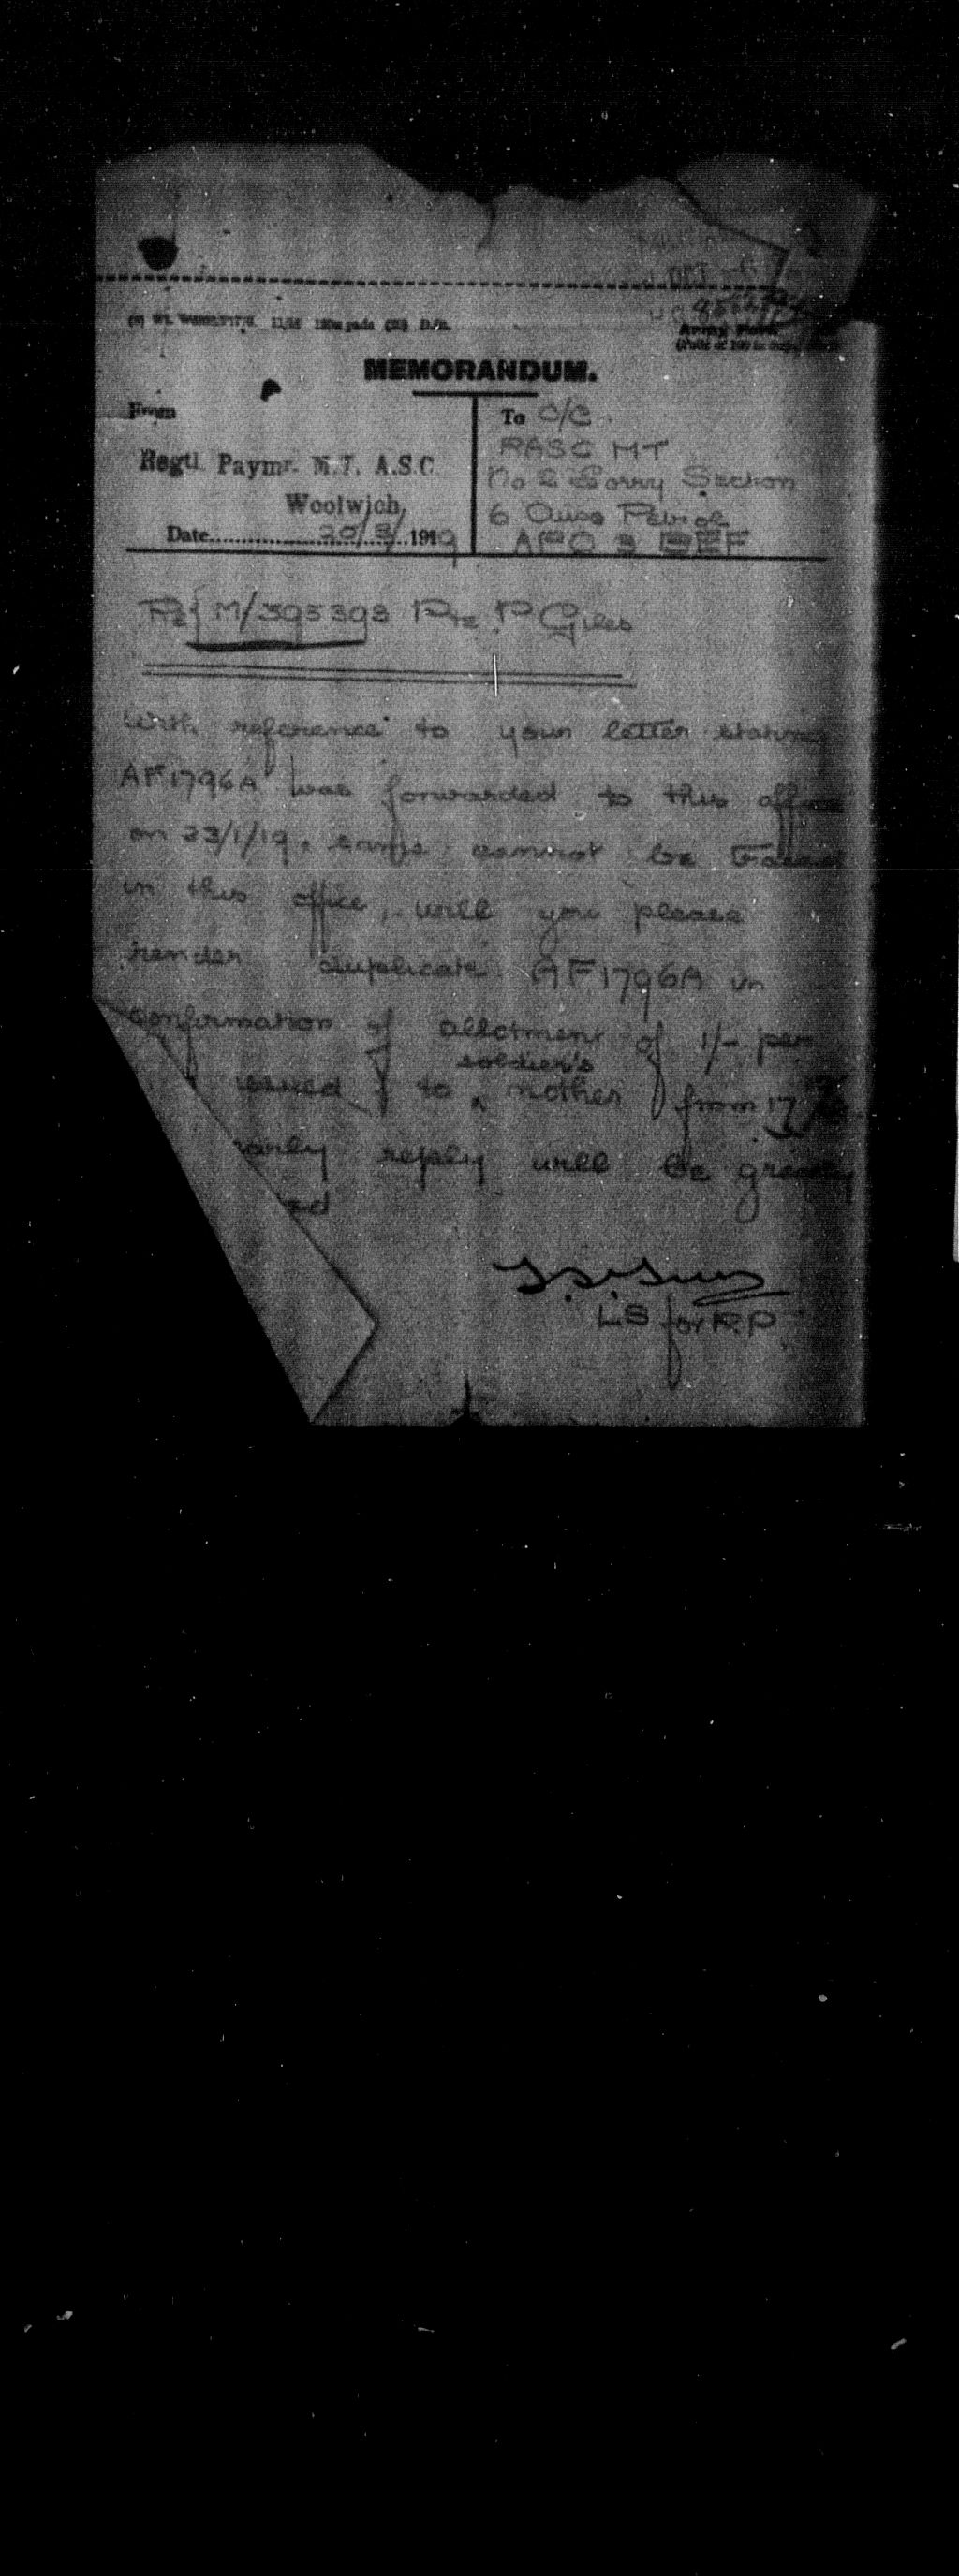 MEMORANDUM.
From
Regtl. Paymr. M.T. A.S.C.
Woolwich,
Date 20/3/1919
To O/C
RASC MT
No 2 Lorry Section
6 Petrol
APO 3 BEF
Re { M/395393 Pte P Giles
With reference to your letter stating
AF1796A was forwarded to this office
on 23/1/19, same cannot be traced
in this office, will you please
render duplicate AF1796A in
confirmation of allotment of 1/- per
soldier's
issued to ^ mother from 17
early reply will be
LS for R.P